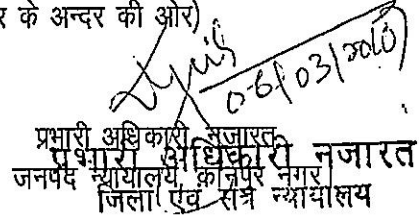 र के अन्दर की ओर)
06/03/2010
प्रभारी अधिकारी नजारत
प्रभारी अधिकारी नजारत
जनपद न्यायालय कानपुर नगर
जिला एवं सत्र न्यायालय